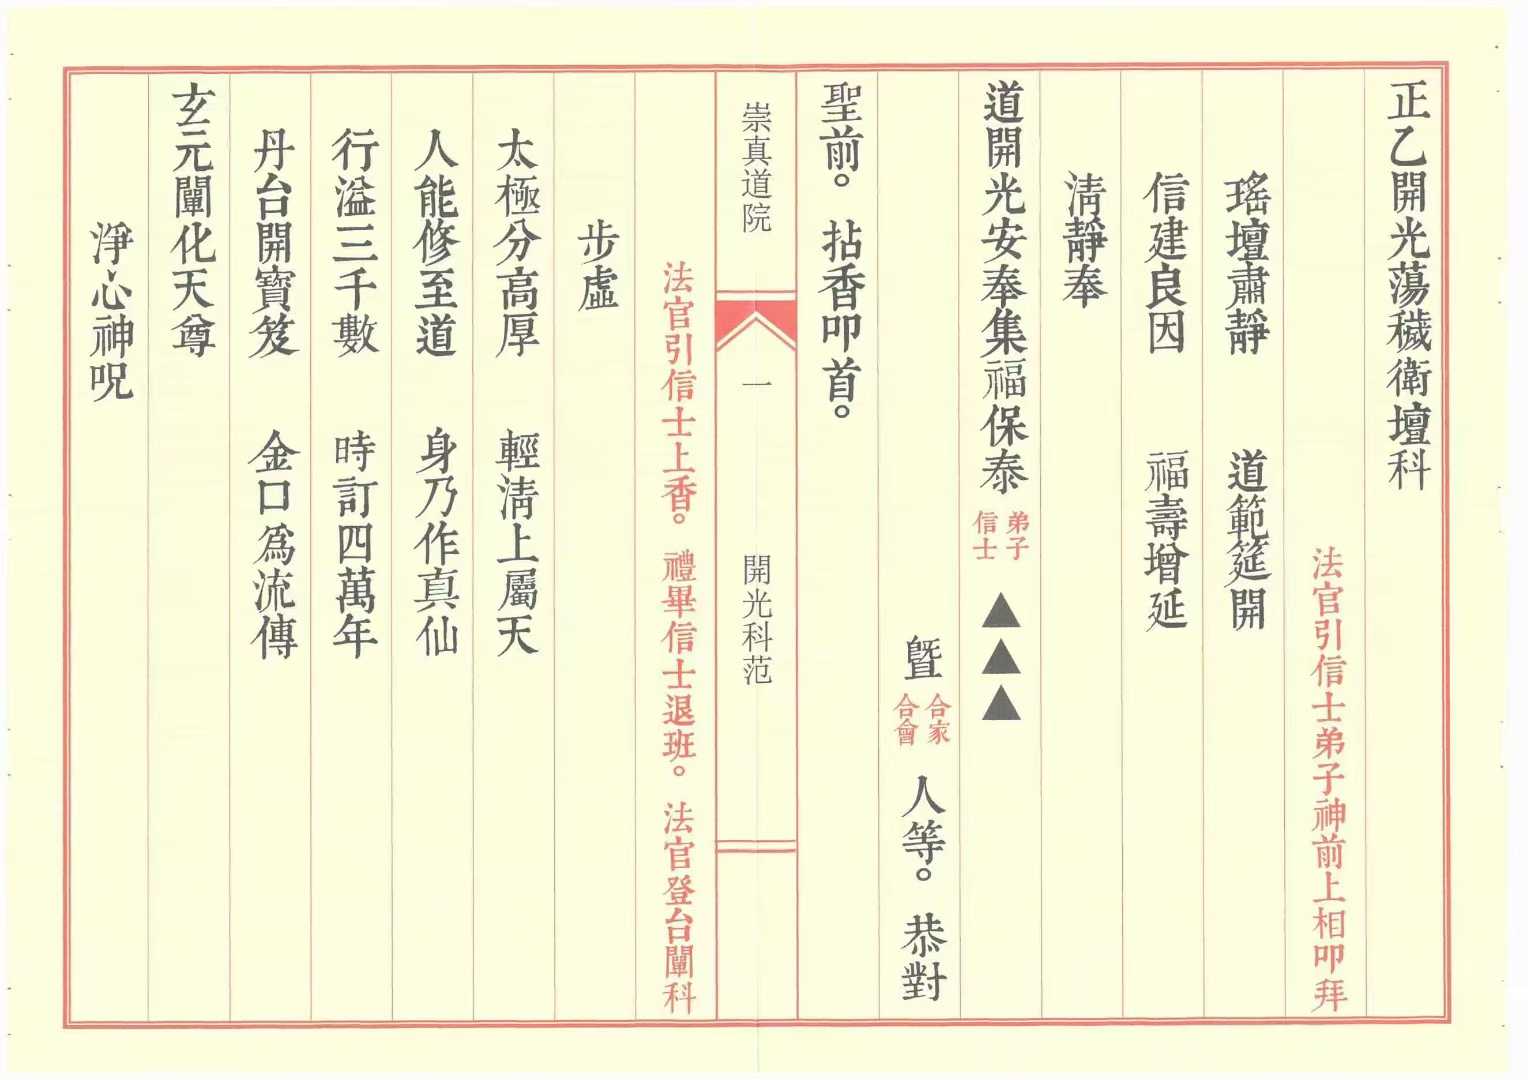 正乙開光蕩穢衛壇科
法官引信士弟子神前上相叩拜
瑤壇肅靜　道範筵開
信建良因　福壽增延
清靜奉
道開光安奉集福保泰　弟子　信士　▲▲▲
暨　合家　合會　人等。恭對
聖前。拈香叩首。
崇真道院　一　開光科范
法官引信士上香。禮畢信士退班。法官登台闡科
步虛
太極分高厚　輕清上屬天
人能修至道　身乃作真仙
行溢三千數　時訂四萬年
丹台開寶笈　金口為流傳
玄元闡化天尊
淨心神呪